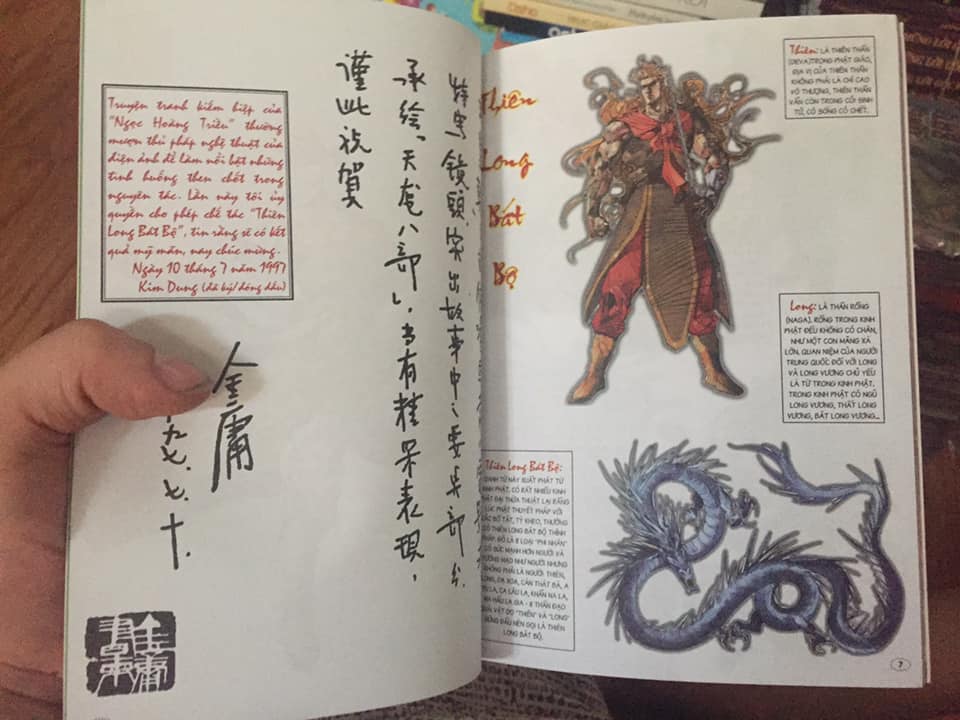 Truyện tranh kiếm hiệp của
"Ngọc Hoàng Triều" thường
mượn thủ pháp nghệ thuật của
điện ảnh để làm nổi bật những
tình huống then chốt trong
nguyên tác. Lần này tôi ủy
quyền cho phép chế tác "Thiên
Long Bát Bộ", tin rằng sẽ có kết
quả mỹ mãn, nay chúc mừng.
Ngày 10 tháng 7 năm 1997
Kim Dung (đã ký/đóng dấu)
鏡頭,突出故事中之要點部分.
承繪「天龙八部」,当有精采表現,
謹此祝賀
金庸
九七、七、十.
Thiên
Long
Bát
Bộ
Thiên: LÀ THIÊN THẦN
(DEVA)TRONG PHẬT GIÁO,
ĐỊA VỊ CỦA THIÊN THẦN
KHÔNG PHẢI LÀ CHÍ CAO
VÔ THƯỢNG, THIÊN THẦN
VẪN CÒN TRONG CÕI SINH
TỬ, CÓ SỐNG CÓ CHẾT.
Long: LÀ THẦN RỒNG
(NAGA). RỒNG TRONG KINH
PHẬT ĐỀU KHÔNG CÓ CHÂN,
NHƯ MỘT CON MÃNG XÀ
LỚN. QUAN NIỆM CỦA NGƯỜI
TRUNG QUỐC ĐỐI VỚI LONG
VÀ LONG VƯƠNG CHỦ YẾU
LÀ TỪ TRONG KINH PHẬT.
TRONG KINH PHẬT CÓ NGŨ
LONG VƯƠNG, THẤT LONG
VƯƠNG, BÁT LONG VƯƠNG...
Thiên Long Bát Bộ:
DANH TỪ NÀY XUẤT PHÁT TỪ
KINH PHẬT. CÓ RẤT NHIỀU KINH
PHẬT ĐẠI THỪA THUẬT LẠI RẰNG
LÚC PHẬT THUYẾT PHÁP VỚI
CÁC BỒ TÁT, TỲ KHEO, THƯỜNG
CÓ THIÊN LONG BÁT BỘ THÍNH
PHÁP. ĐÓ LÀ 8 LOẠI "PHI NHÂN"
CÓ SỨC MẠNH HƠN NGƯỜI VÀ
TƯỚNG MẠO NHƯ NGƯỜI NHƯNG
KHÔNG PHẢI LÀ NGƯỜI: THIÊN,
LONG, DẠ XOA, CÀN THÁT BÀ, A
TU LA, CA LÂU LA, KHẨN NA LA,
MA HẦU LA GIA - 8 THẦN ĐẠO
QUÁI VẬT DO "THIÊN" VÀ "LONG"
ĐỨNG ĐẦU NÊN GỌI LÀ THIÊN
LONG BÁT BỘ.
7